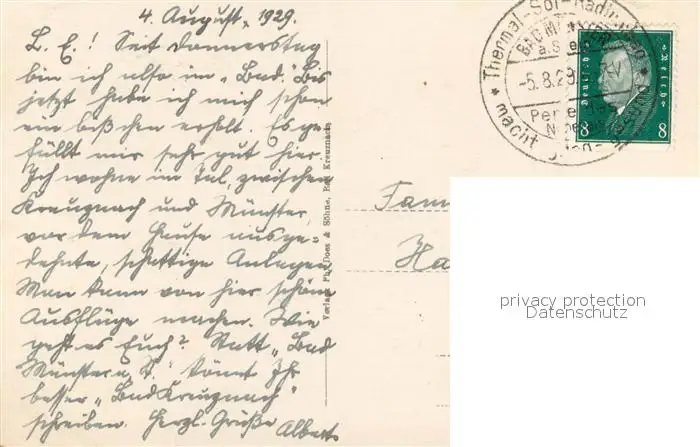 4. August 1929.
L. E.! Seit Donnerstag
bin ich also im „Bad". Bis
jetzt habe ich mich schon
ein bißchen erholt. Es ge-
fällt mir sehr gut hier.
Ich wohne im Tal, zwischen
Kreuznach und Münster,
vor dem Hause ausge-
dehnte, schattige Anlagen.
Man kann von hier schöne
Ausflüge machen. Wie
geht es Euch? Statt „Bad
Münster a. St." könnt Ihr
besser „Bad Kreuznach"
schreiben. Herzl. Grüße
Albert
Verlag Ph. Does & Söhne, Bad Kreuznach
Thermal-Sol-Radium-Bad
BAD MÜNSTER
a. Stein
-5.8.29
Perle
macht
Deutsches Reich
8 8
Fam
Ha
privacy protection
Datenschutz